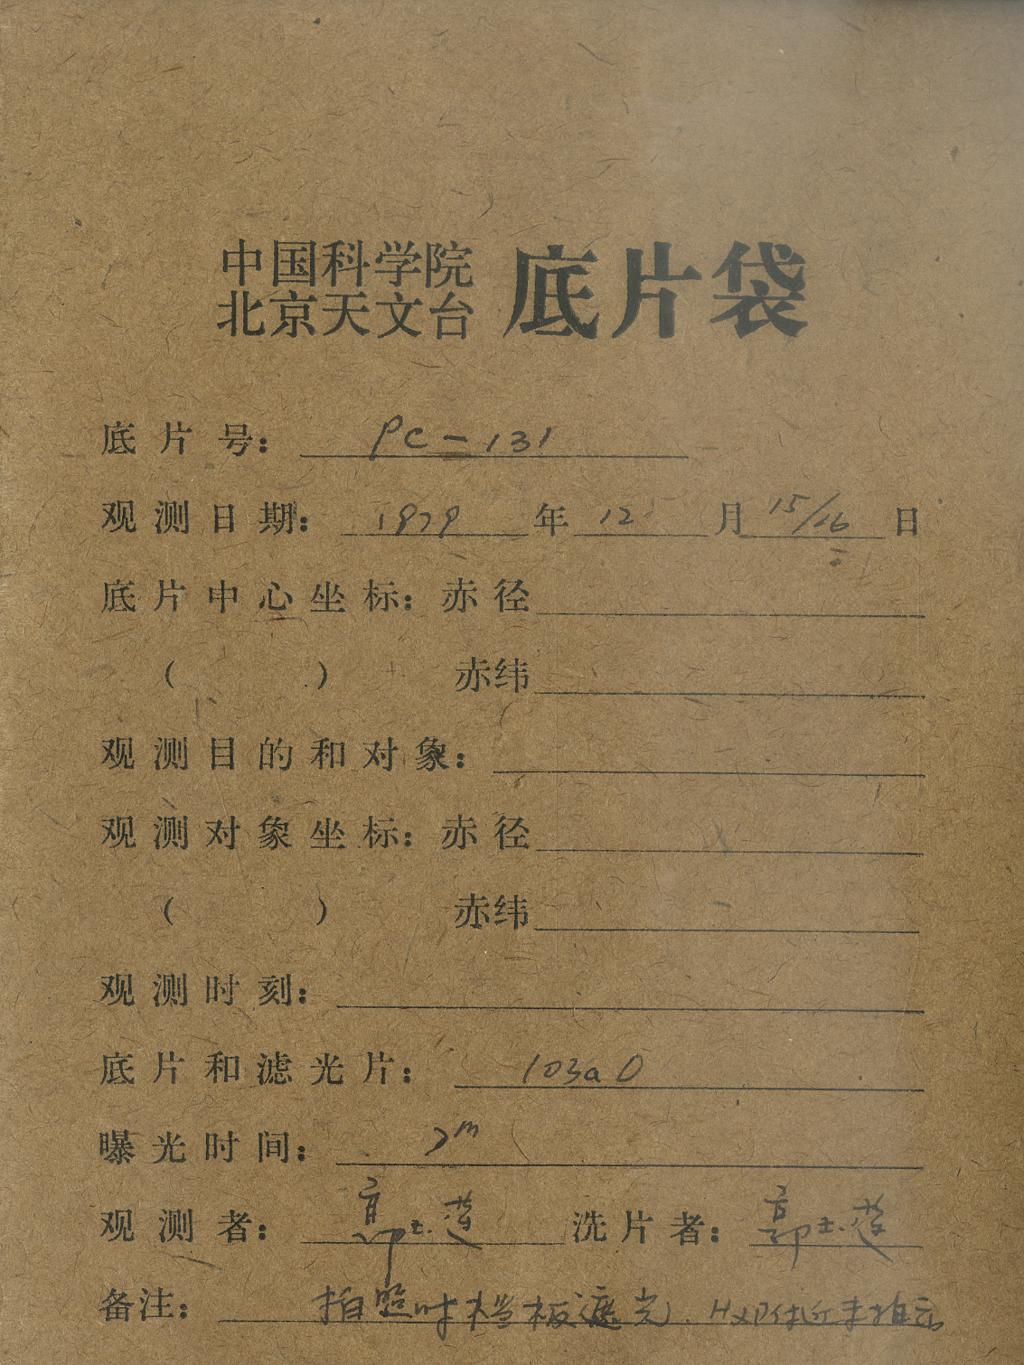 中国科学院
北京天文台 底片袋
底片号: PC-131
观测日期: 1979 年 12 月 15/16 日
底片中心坐标: 赤径
( ) 赤纬
观测目的和对象:
观测对象坐标: 赤径
( ) 赤纬
观测时刻:
底片和滤光片: 103aO
曝光时间: 7m
观测者: 郭玉莲 洗片者: 郭玉莲
备注: 拍照时挡板遮光.